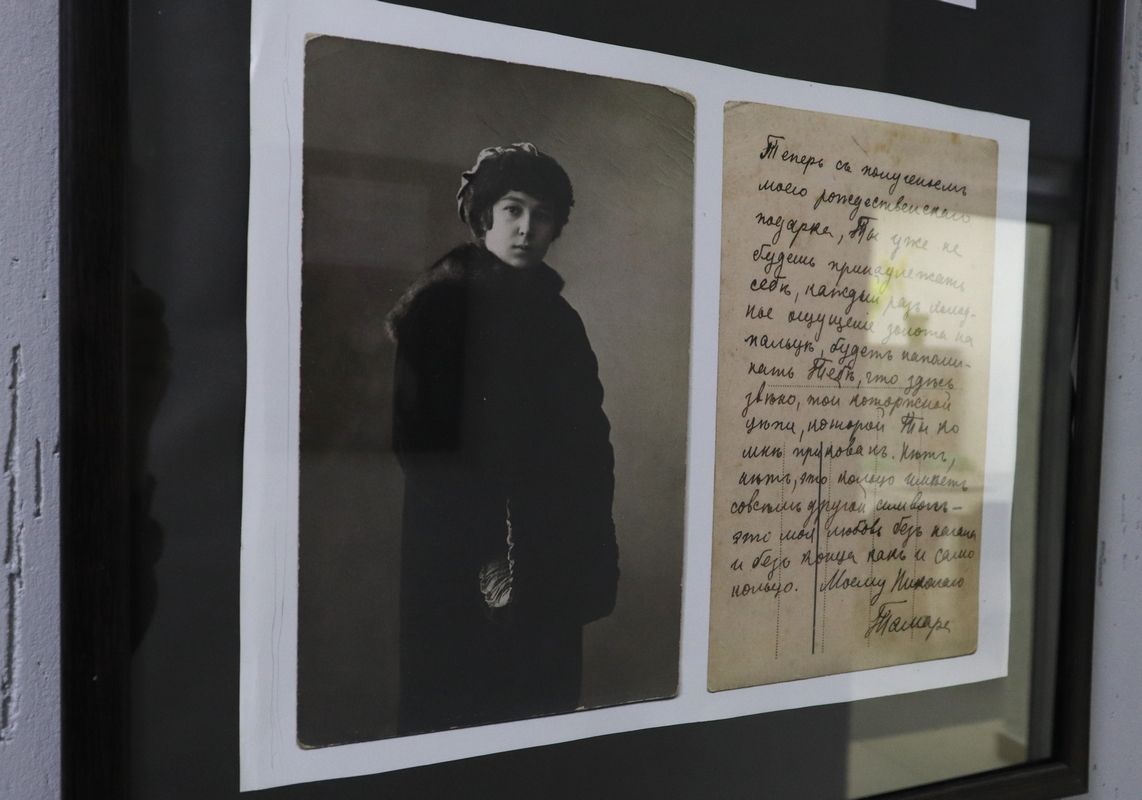 Теперь съ полученіемъ
моего рождественскаго
подарка, Ты уже не
будешь принадлежать
себѣ, каждый разъ холод-
ное ощущеніе золота на
пальцѣ, будетъ напоми-
нать Тебѣ, что здѣсь
звѣно, той каторжной
цѣпи, которой Ты ко
мнѣ прикованъ. Нѣтъ,
нѣтъ, это кольцо имѣетъ
совсѣмъ другой символъ—
это моя любовь безъ начала
и безъ конца какъ и само
кольцо. Моему Николаю
Тамара